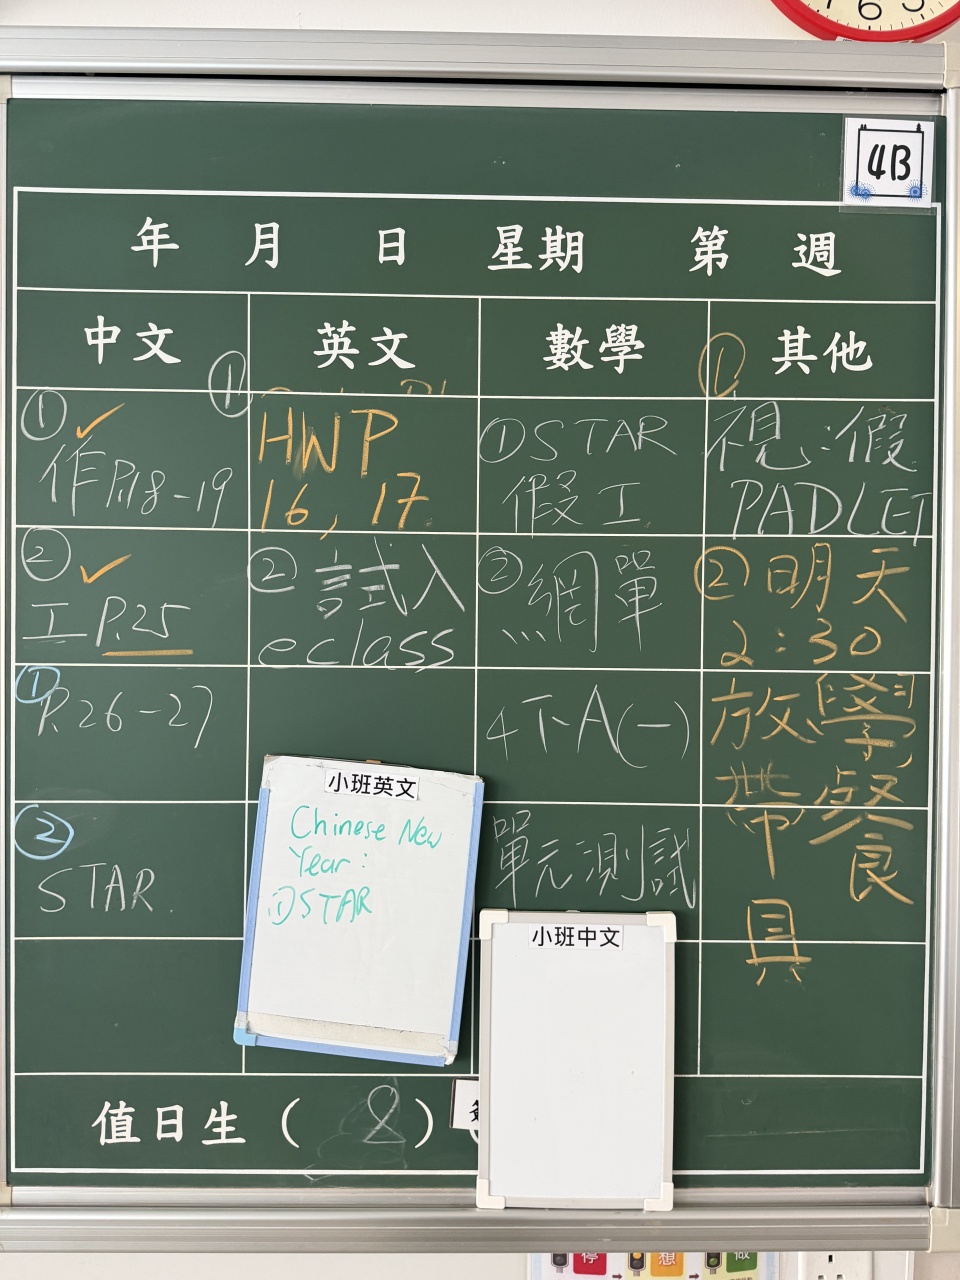 4B
年 月 日 星期 第 週
中文
①✓
作P.18-19
②✓
工P.25
①
P.26-27
②
STAR
英文
①
HWP
16, 17
② 試入
eclass
小班英文
Chinese New
Year:
①STAR
數學
①STAR
假工
②網單
4下A(一)
單元測試
小班中文
其他
①
視:假
PADLET
②明天
2:30
放學
帶餐
具
值日生( 8 )
停
想
做